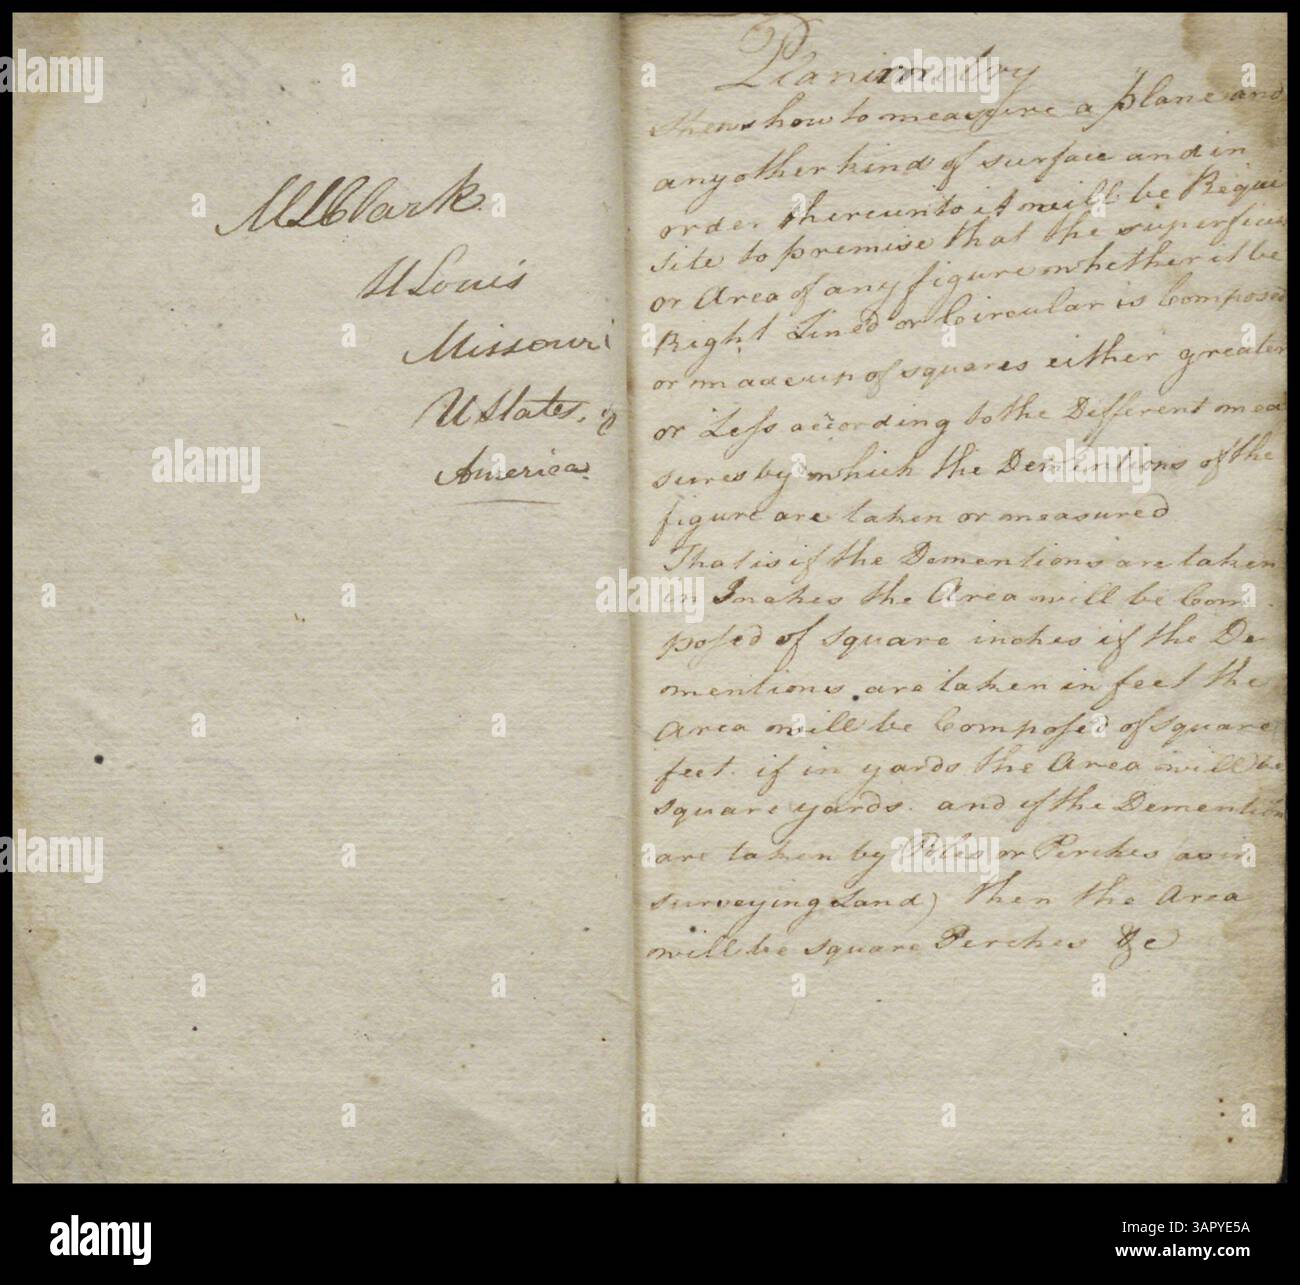 M L Clark
St Louis
Missouri
U States, of
America
Planimetry
shews how to measure a plane and
any other kind of surface and in
order thereunto it will be Requi
site to premise that the superficies
or Area of any figure whether it be
Right Lin'd or Circular is Composed
or made up of squares either greater
or Less according to the Different mea
sures by which the Dementions of the
figure are taken or measured
That is if the Dementions are taken
in Inches the Area will be Com
posed of square inches if the De
mentions are taken in feet the
Area will be Composed of square
feet. if in yards the Area will be
square yards. and if the Demention
are taken by Poles or Perches (as in
surveying Land) then the Area
will be square Perches &c
alamy
Image ID: 3APYE5A
www.alamy.com